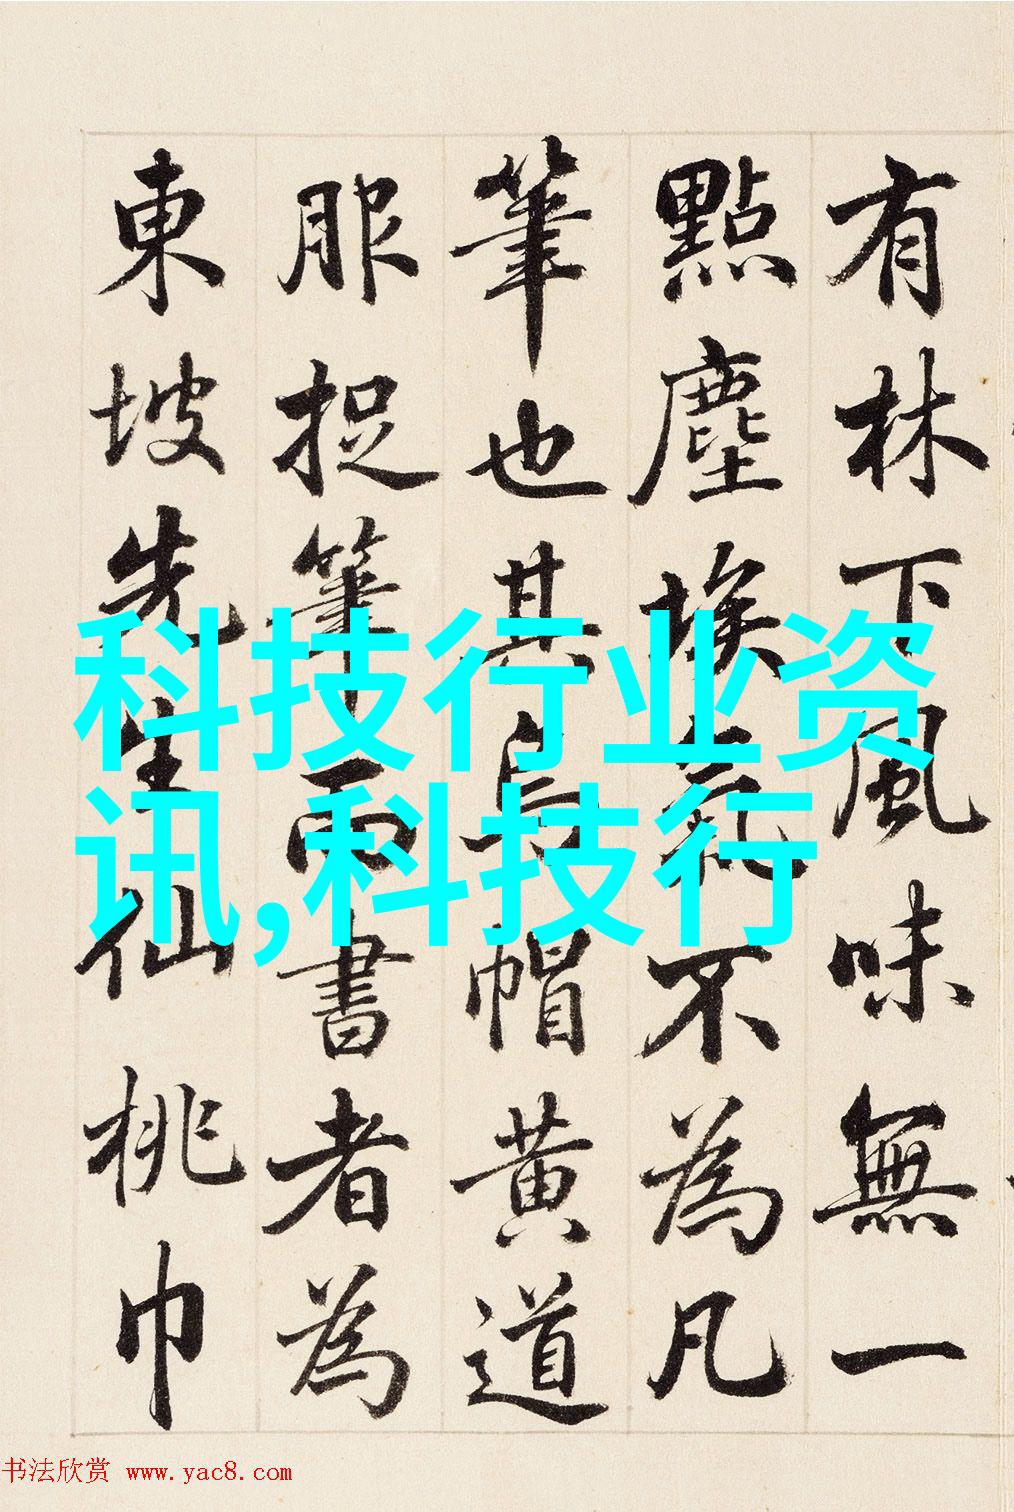 有林下風味無一
點塵埃氣不為凡
筆也其烏帽黃道
服捉筆而書者為
東坡先生仙桃巾
科技行业资
讯,科技行
书法欣赏 www.yac8.com